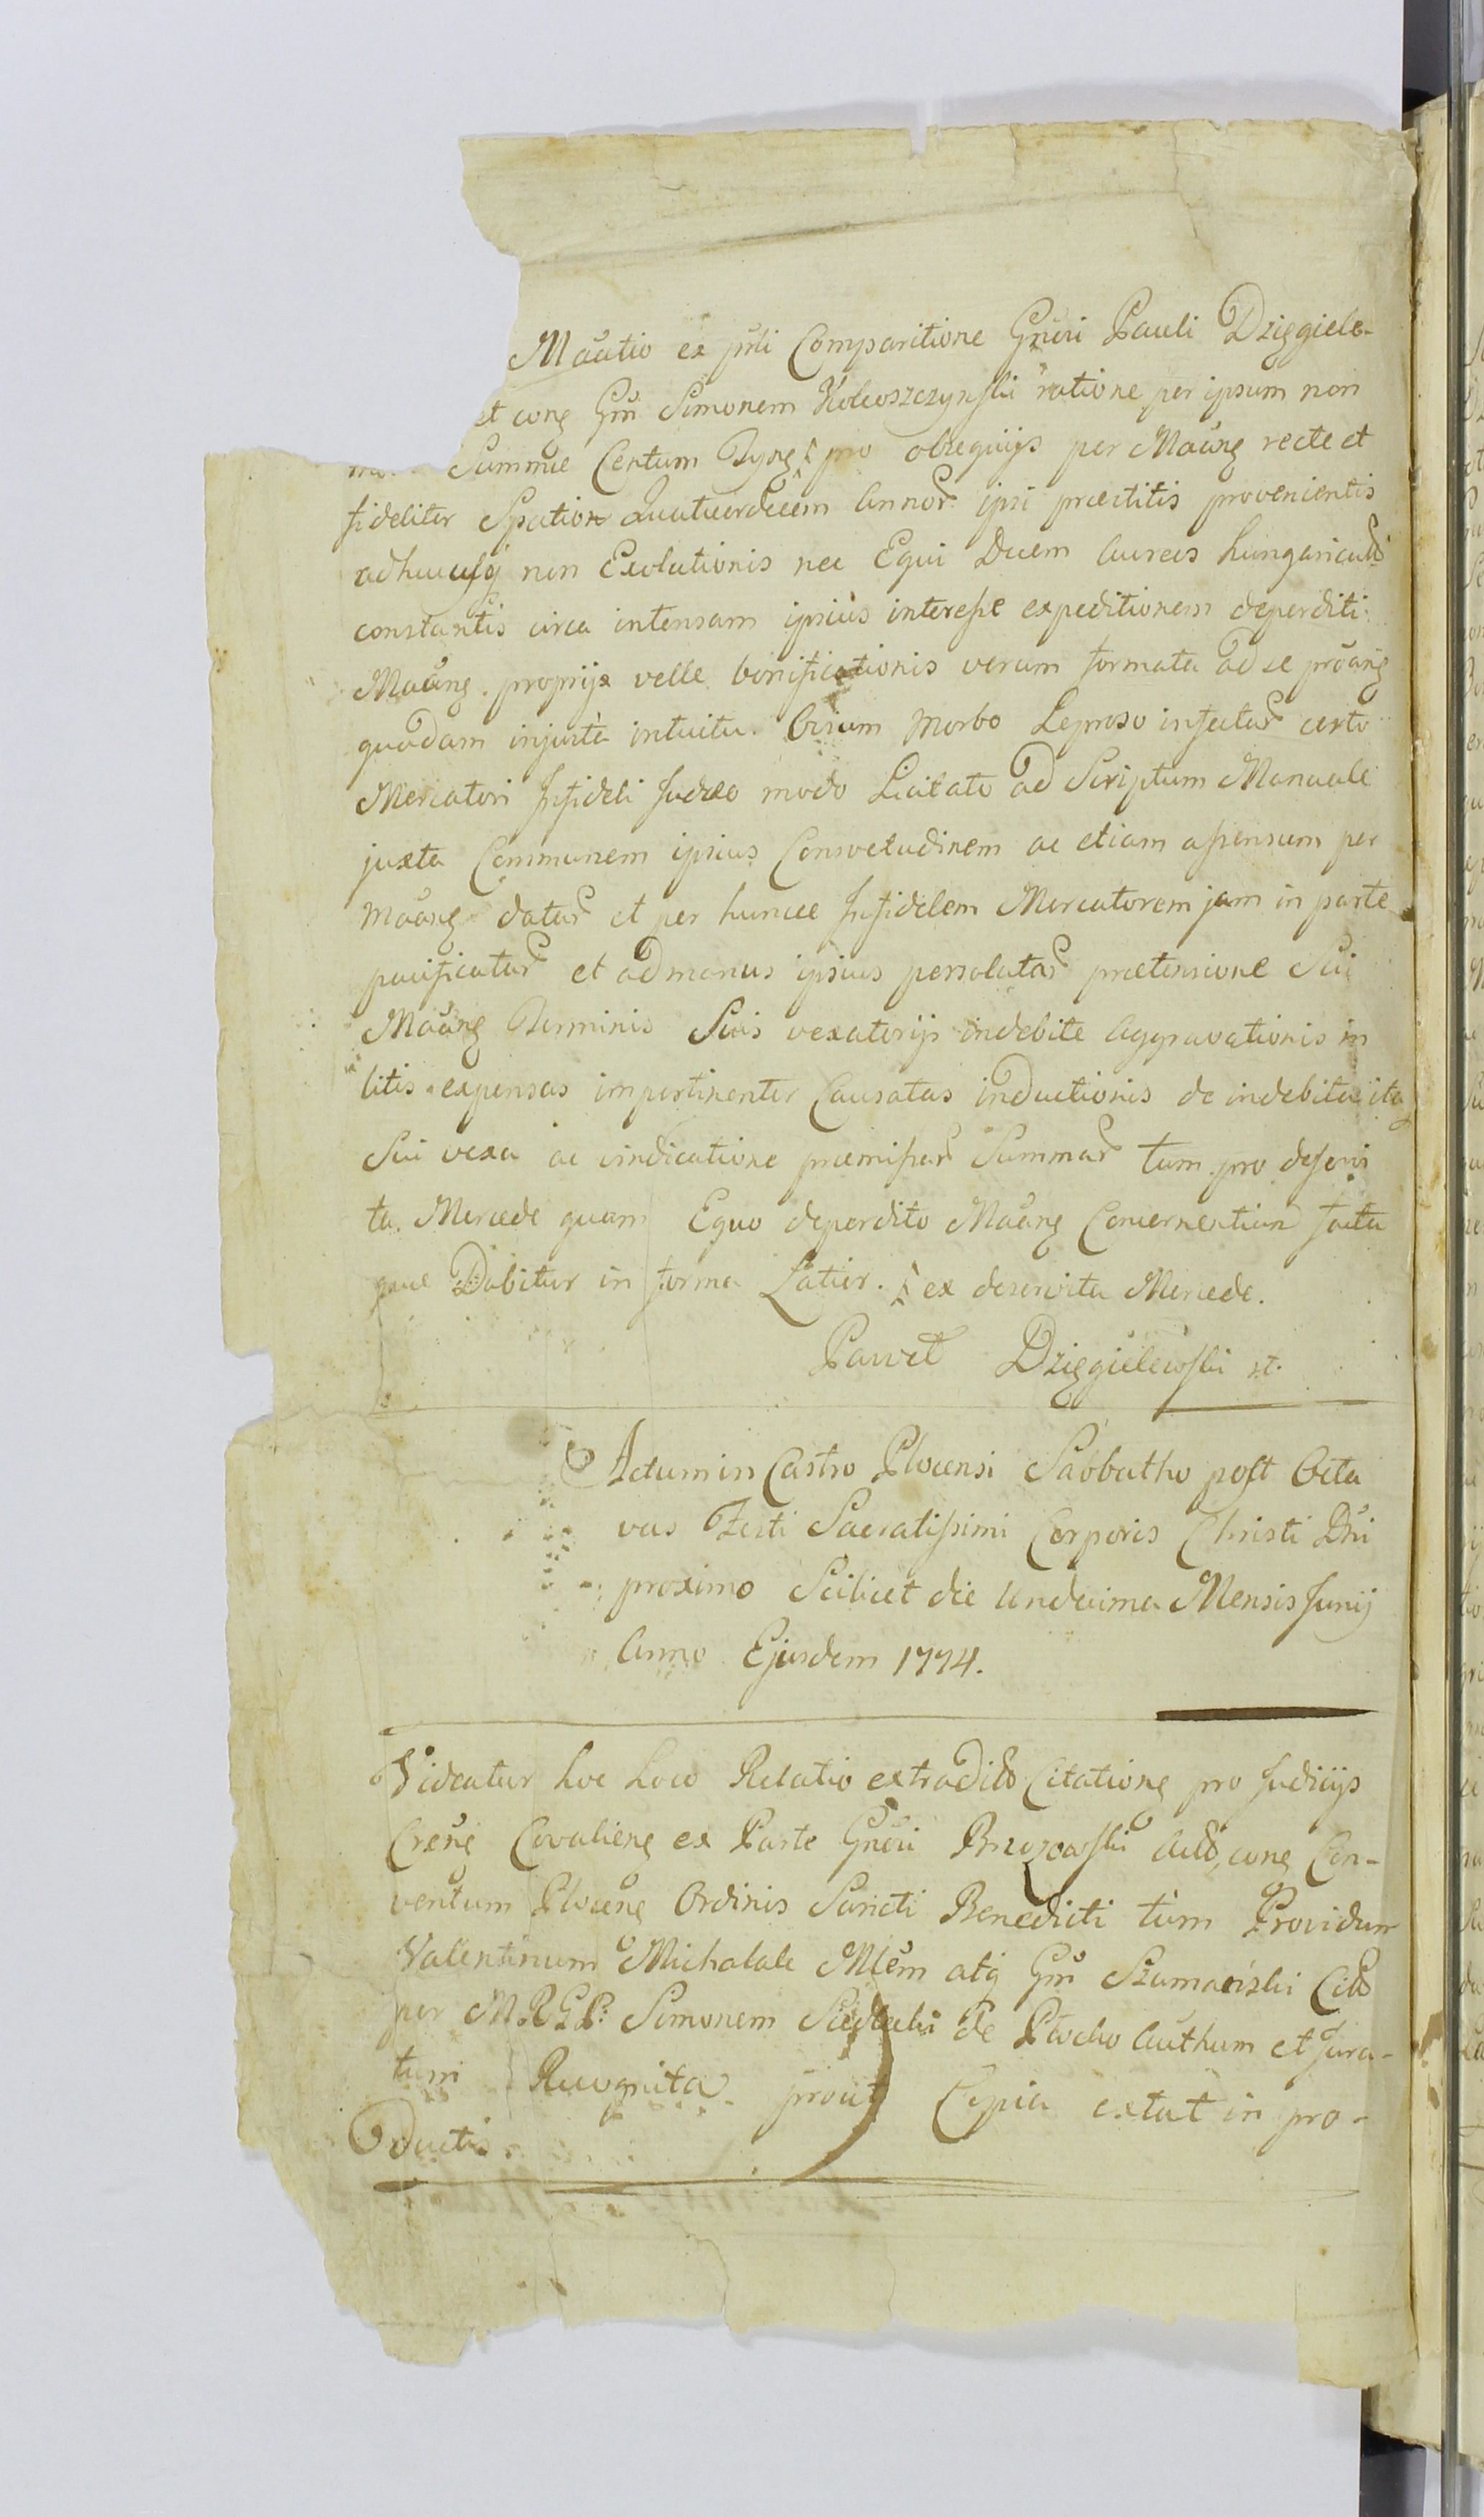 Mãatio ex pñti Comparitione Gnõri Pauli Dzięgiele-
et cong Gñi Simonem Kołoszczynski ratione per ipsum non
Summæ Centum Tynf pro obsequijs per Mãang recte et
fideliter Spatio Quatuordecem Annor ipsi præstitis provenientis
adhucusq non Exolutionis nec Equi Duem Aureos hungarical
constantis circa intensam ipsius interesse expeditionem deperditi
Mãang proprijs velle bonificationis verum formata ad se prõang
quadam injusta intuitu Ovium Morbo Leproso infectar certo
Mercatori Infideli Judæo modo Licitato ad Scriptum Manuale
juxta Communem ipsius Consvetudinem ac etiam assensum per
Mãang datar et per huncce Infidelem Mercatorem jam in parte
pacificatar et ad manus ipsius persolutar prætensione Sui
Mãang Terminis Suis vexatorijs indebite Aggravationis in
litis expensas impertinenter Causatas inductionis de indebita ita
Sui vexa ac vindicatione præmissar Summar tum pro deservi
ta Mercede quam Equo deperdito Mãang Concernentium facta
quæ Dabitur in forma Latior. ex deservita Mercede.
Paweł Dzięgielewski st.
Actum in Castro Plocensi Sabbatho post Octa
vas Festi Sacratissimi Corporis Christi Dni
proximo Scilicet die Undecima Mensis Junij
Anno Ejusdem 1774.
Videatur hoc Loco Relatio extradit Citationg pro Judicijs
Crẽng Covalieng ex Parte Gnõri Brzozowski cong Con-
ventum Plocẽng Ordinis Sancti Benedicti tum Providum
Valentinum Michalak Mlẽm atq Gñi Szumański
per M.R.G.P. Simonem Siedlecki de Płocko Authum et Jura-
tum Recognita prout Copia extat in pro-
ductis.